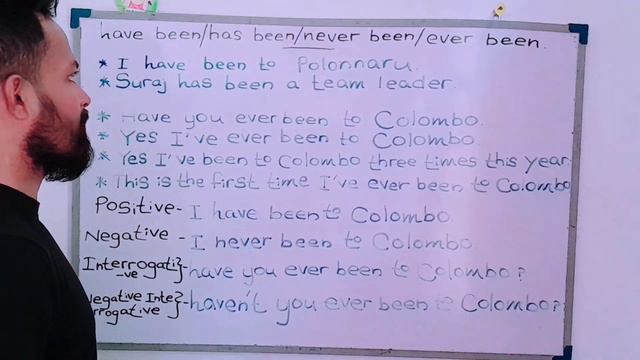 have been/has been/never been/ever been.
* I have been to Polonnaru.
* Suraj has been a team leader.
* Have you ever been to Colombo.
* Yes I've ever been to Colombo.
* Yes I've been to Colombo three times this year
* This is the first time I've ever been to Colombo
Positive - I have been to Colombo.
Negative - I never been to Colombo.
Interrogati-ve} - have you ever been to Colombo?
Negative Inte rrogative} - haven't you ever been to Colombo?